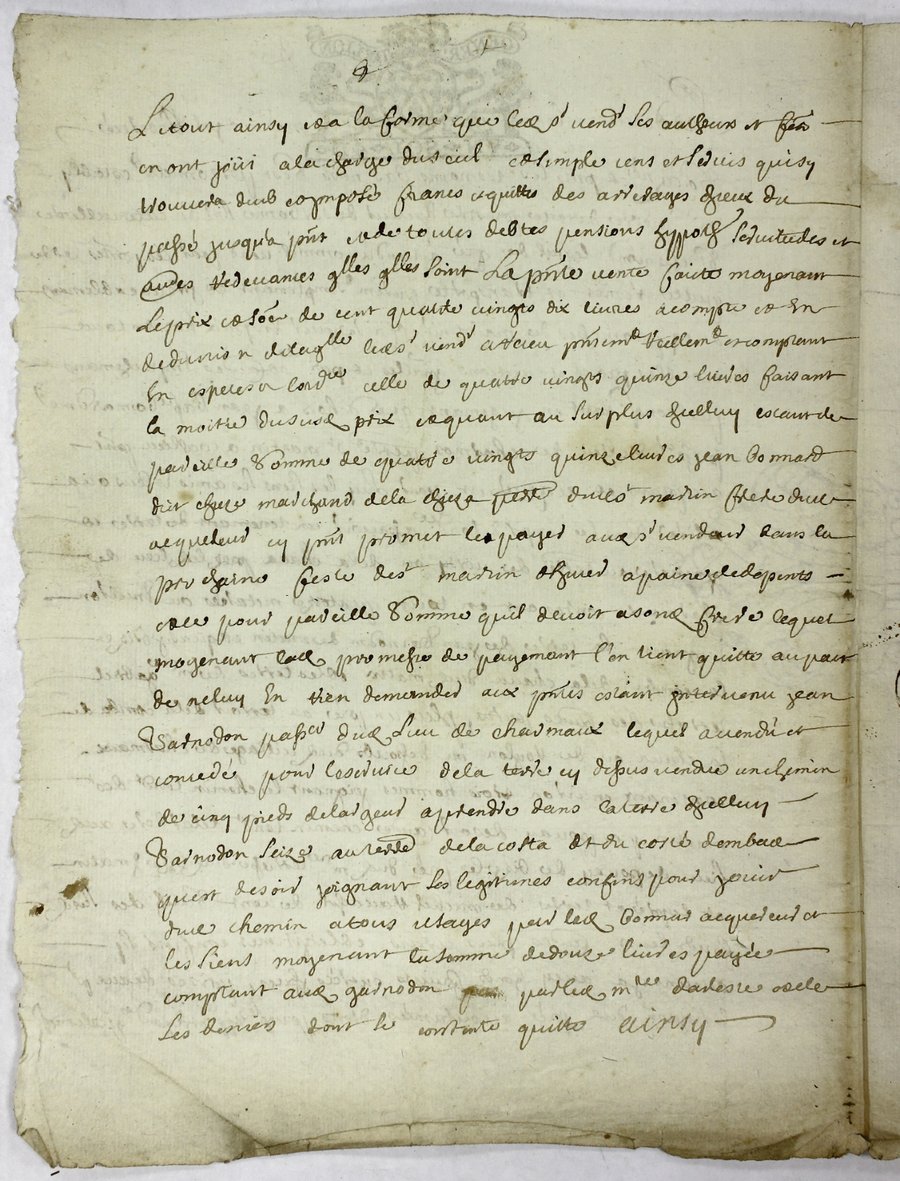 Le tout ainsy et a la forme que led sr vend ses autheurs et
en ont joüi a la charge du seul et simple cens et servis quisy
trouvera deub et imposé francs et quitte des arrerages diceux du
passé jusqua pnt et de toutes debtes pensions hyppoth servitudes et
autres redevances glles glles soint La pnte vente faicte moyenant
Le prix et soē de cent quatre vingts dix livre a compte et En
de laqlle led sr vend a receu pnsemt reellemt et comptant
En especes celle de quatre vingts quinze livres faisant
la moitie dususd prix et quant au surplus dicelluy estant de
pareille somme de quatre vingts quinze livres jean bonnard
dit marchand de la pere dud sr martin frere dud
acqueleur cy pnt promet le payer aud sr vendeur dans la
prochaine feste de st martin dhiver a paine de depents
et ce pour pareille somme quil devoit a sond frere lequel
moyenant lad promesse de payement l'en tient quitte au pact
de neluy En rien demander aux pntes estant intervenu jean
Varnodon dud Lieu de charmaux lequel a vendu et
concedé pour le service de la terre cy dessus vendue un chemin
de cinq pieds de largeur a prendre dans la terre dicelluy
Varnodon seize au de la costa et du costé dembad
quert de soir joignant ses legitimes confins pour jouir
dud chemin a tous usages par led bonnar acquereur et
les siens moyenant la somme de douze livres payée
comptant aud garnodon par led mre et de
les deniers dont se contente quitte ainsy